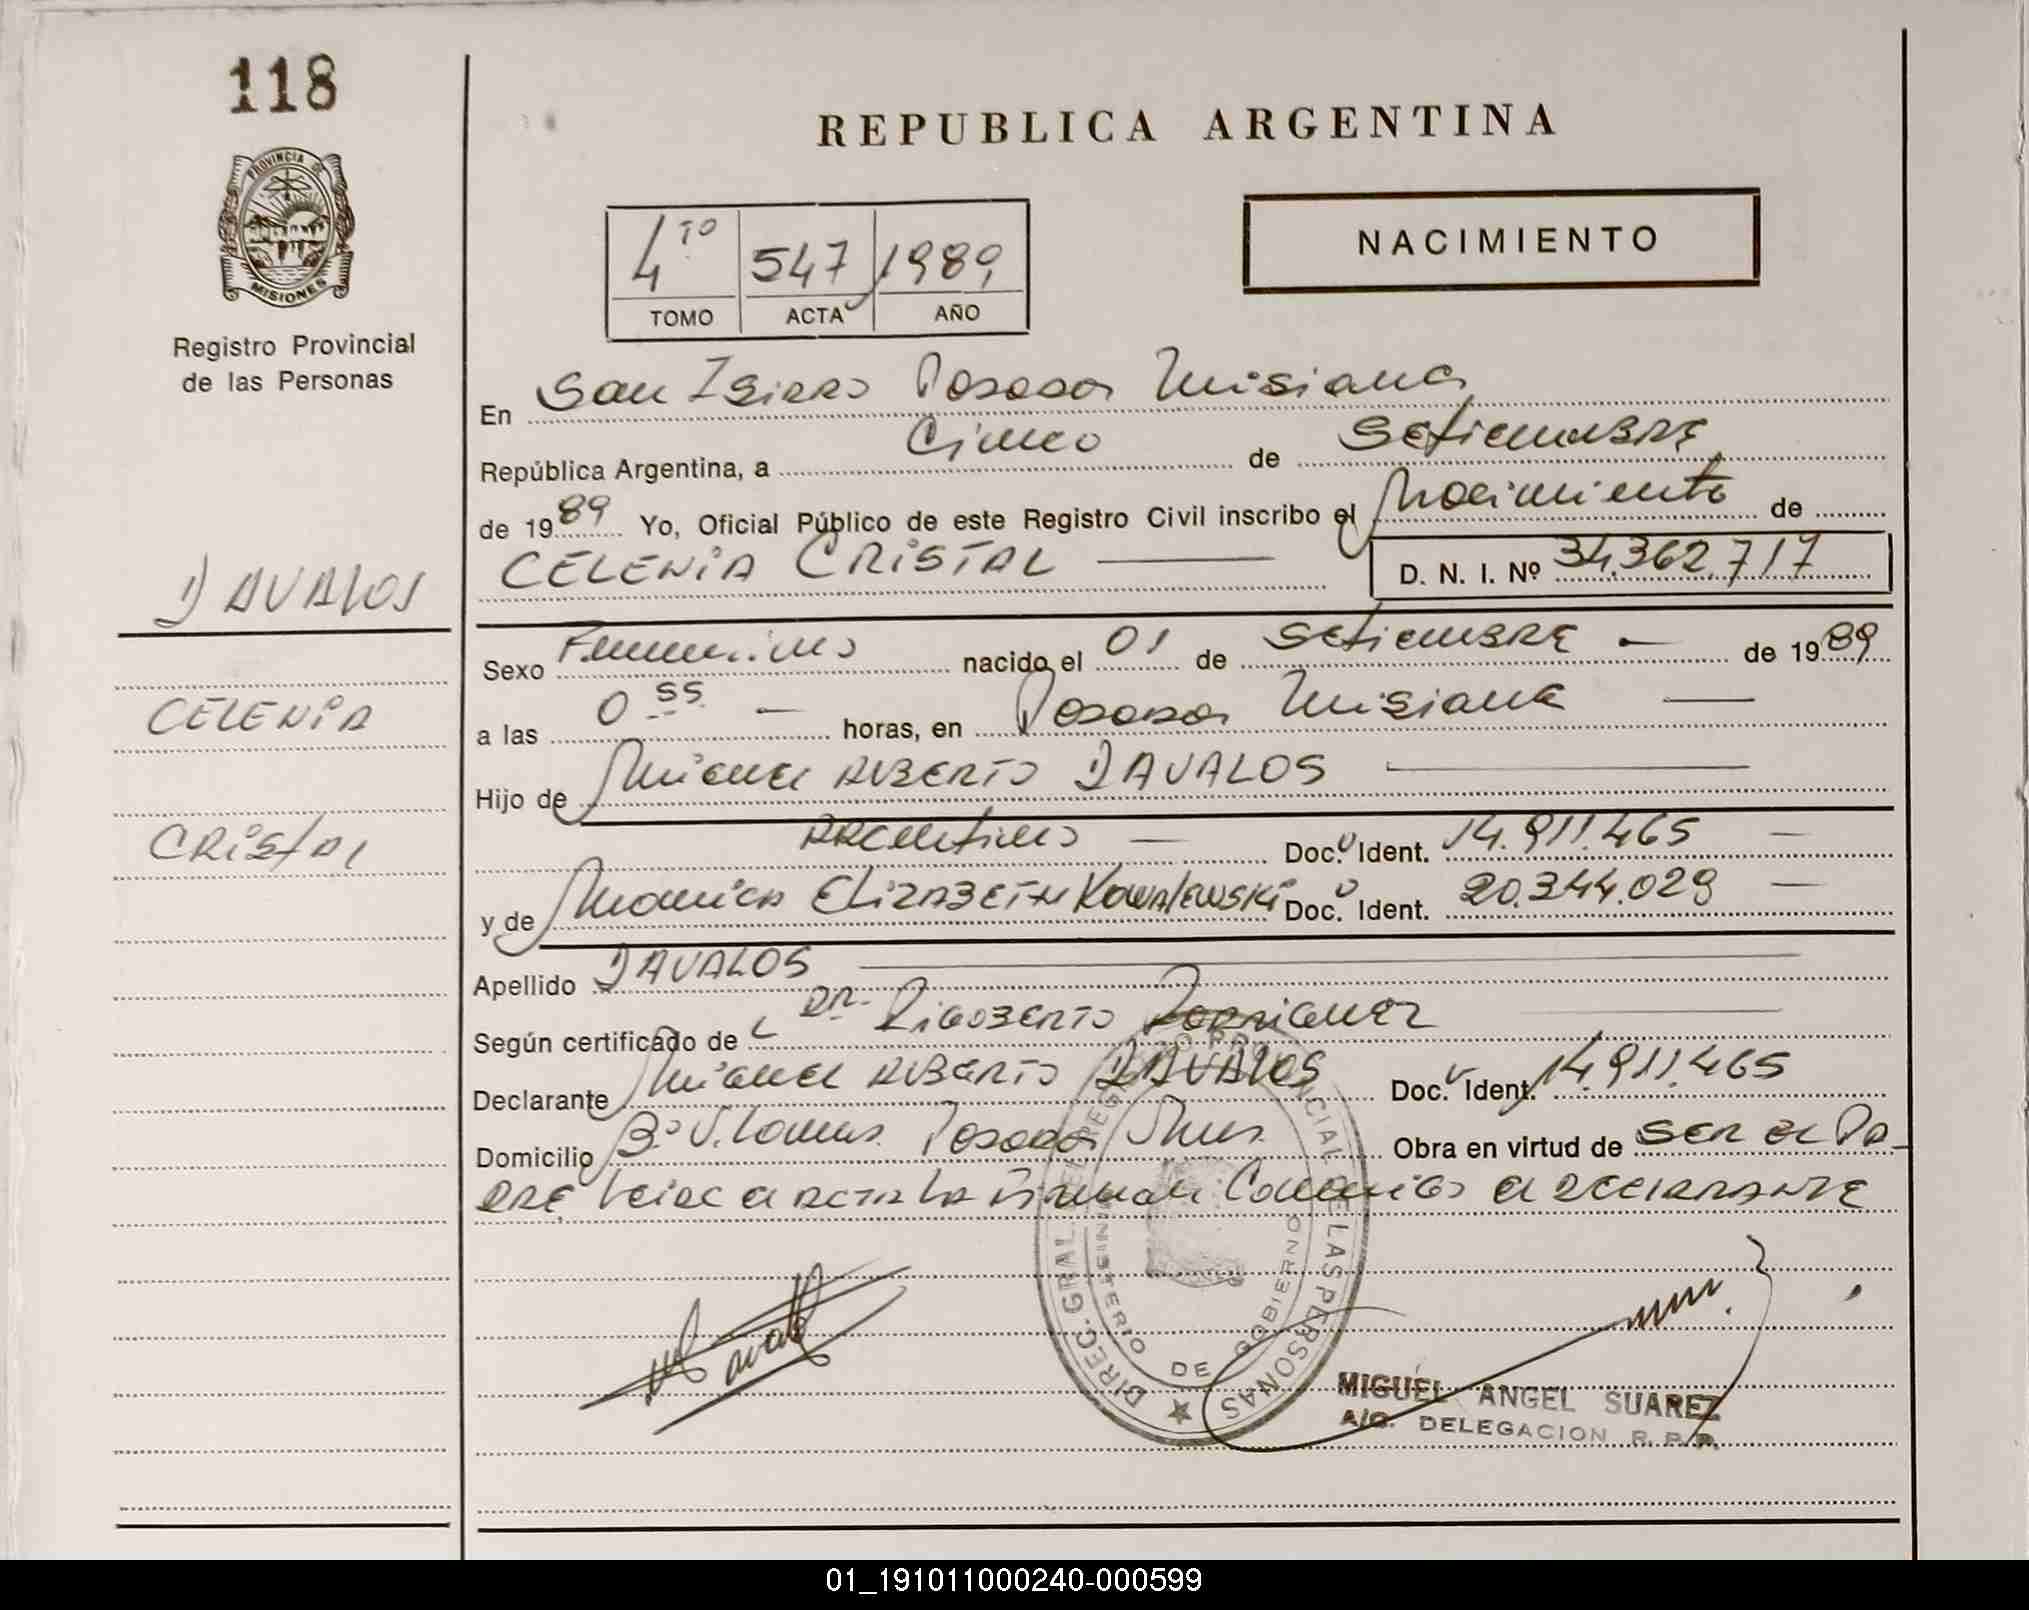 118
REPUBLICA ARGENTINA
PROVINCIA DE
MISIONES
Registro Provincial
de las Personas
4to 547 1989
TOMO ACTA AÑO
NACIMIENTO
En San Isidro Posadas Misiones
República Argentina, a Cinco de Setiembre
de 1989 Yo, Oficial Público de este Registro Civil inscribo el Nacimiento de
CELENIA CRISTAL D. N. I. Nº 34.362.717
DAVALOS
CELENIA
CRISTAL
Sexo Femenino nacido el 01 de Setiembre de 1989
a las 0 55 horas, en Posadas Misiones
Hijo de Miguel Alberto DAVALOS
Argentino Doc. Ident. 14.911.465
y de Monica Elizabeth Kowalewski Doc. Ident. 20.344.029
Apellido DAVALOS
Según certificado de Dr. Rigoberto Rodriguez
Declarante Miguel Alberto DAVALOS Doc. Ident. 14.911.465
Domicilio Bº V. Lomas Posadas Mnes. Obra en virtud de ser el Pa-
dre leida el acta la firman Conmigo el declarante
DIREC. GRAL. DEL REGISTRO PROVINCIAL DE LAS PERSONAS
MINISTERIO DE GOBIERNO
MIGUEL ANGEL SUAREZ
A/C. DELEGACION R. P. P.
01_191011000240-000599